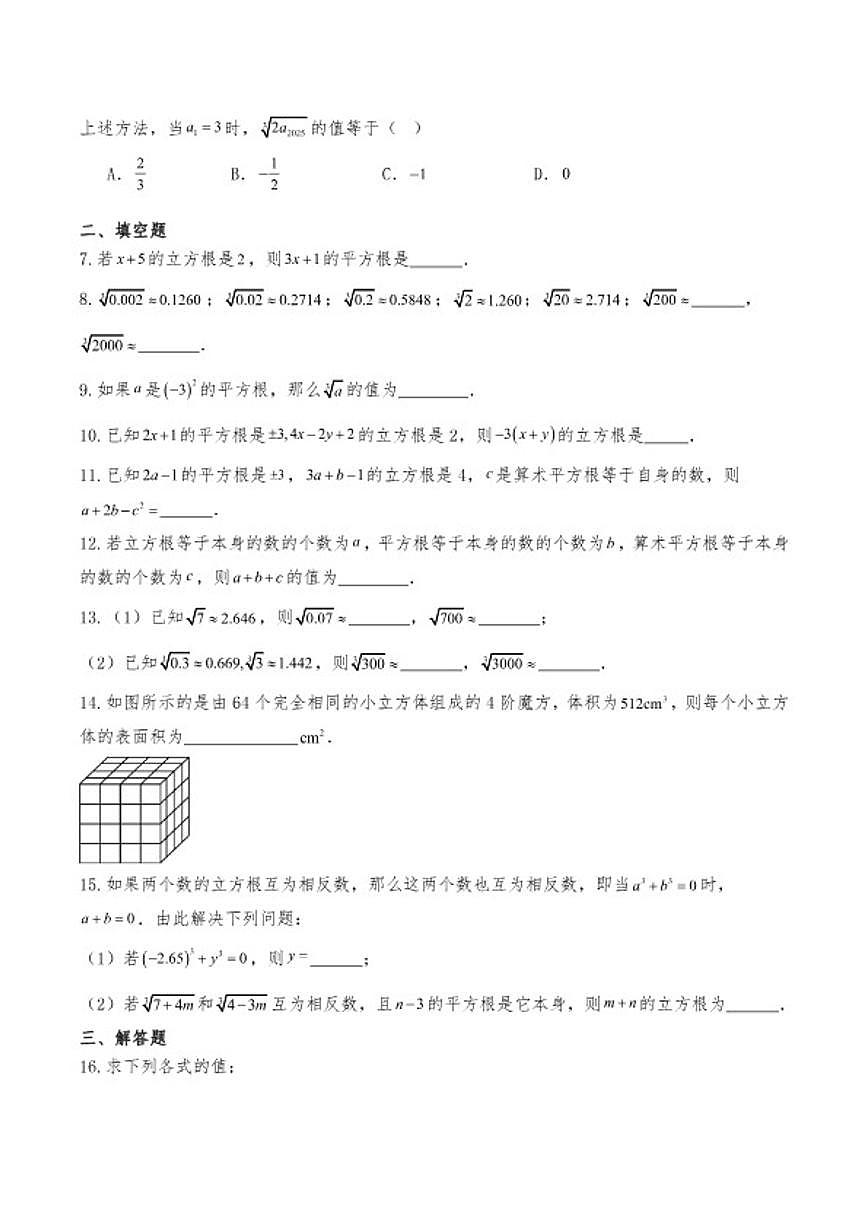 上述方法，当 a₁ = 3 时，∛(2a₂₀₂₅) 的值等于（  ）
A. 2/3  B. −1/2  C. −1  D. 0
二、填空题
7. 若 x+5 的立方根是 2，则 3x+1 的平方根是______.
8. ∛0.002 ≈ 0.1260；∛0.02 ≈ 0.2714；∛0.2 ≈ 0.5848；∛2 ≈ 1.260；∛20 ≈ 2.714；∛200 ≈ ______，
∛2000 ≈ ______.
9. 如果 a 是 (−3)² 的平方根，那么 ∛a 的值为________.
10. 已知 2x+1 的平方根是 ±3, 4x−2y+2 的立方根是 2，则 −3(x+y) 的立方根是_____.
11. 已知 2a−1 的平方根是 ±3，3a+b−1 的立方根是 4，c 是算术平方根等于自身的数，则
a+2b−c² = ______.
12. 若立方根等于本身的数的个数为 a，平方根等于本身的数的个数为 b，算术平方根等于本身
的数的个数为 c，则 a+b+c 的值为________.
13.（1）已知 √7 ≈ 2.646，则 √0.07 ≈ _______，√700 ≈ _______；
（2）已知 ∛0.3 ≈ 0.669, ∛3 ≈ 1.442，则 ∛300 ≈ _______，∛3000 ≈ _______.
14. 如图所示的是由 64 个完全相同的小立方体组成的 4 阶魔方，体积为 512cm³，则每个小立方
体的表面积为_____________cm².
15. 如果两个数的立方根互为相反数，那么这两个数也互为相反数，即当 a³+b³=0 时，
a+b=0. 由此解决下列问题：
（1）若 (−2.65)³+y³=0，则 y=______；
（2）若 ∛(7+4m) 和 ∛(4−3m) 互为相反数，且 n−3 的平方根是它本身，则 m+n 的立方根为______.
三、解答题
16. 求下列各式的值：